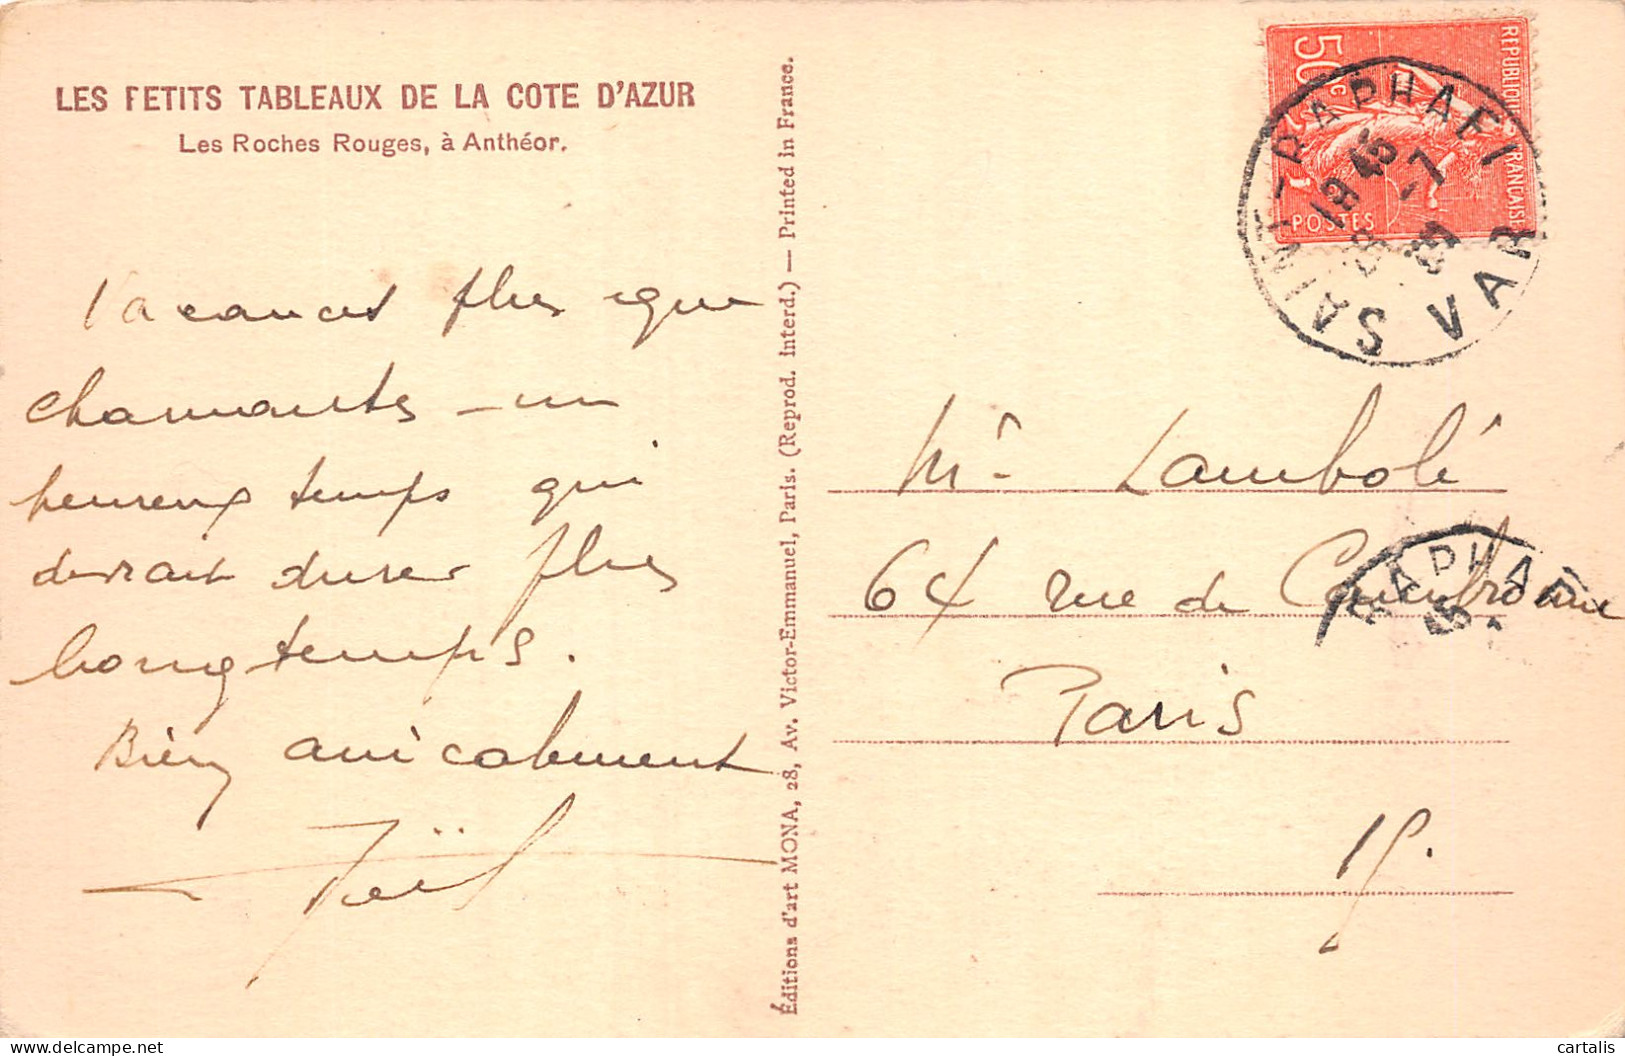 LES PETITS TABLEAUX DE LA COTE D'AZUR
Les Roches Rouges, à Anthéor.
Vacances plus que
charmantes - un
heureux temps qui
devrait durer plus
longtemps.
Bien amicalement
Joël
Éditions d'art MONA, 28, Av. Victor-Emmanuel, Paris. (Reprod. Interd.) — Printed in France.
50c
REPUBLIQUE FRANCAISE
POSTES
SAINT-RAPHAEL
VAR
18 45
-7
Mr Lambolé
64 rue de Cambronne
Paris
15.
RAPHAE
45
cartalis